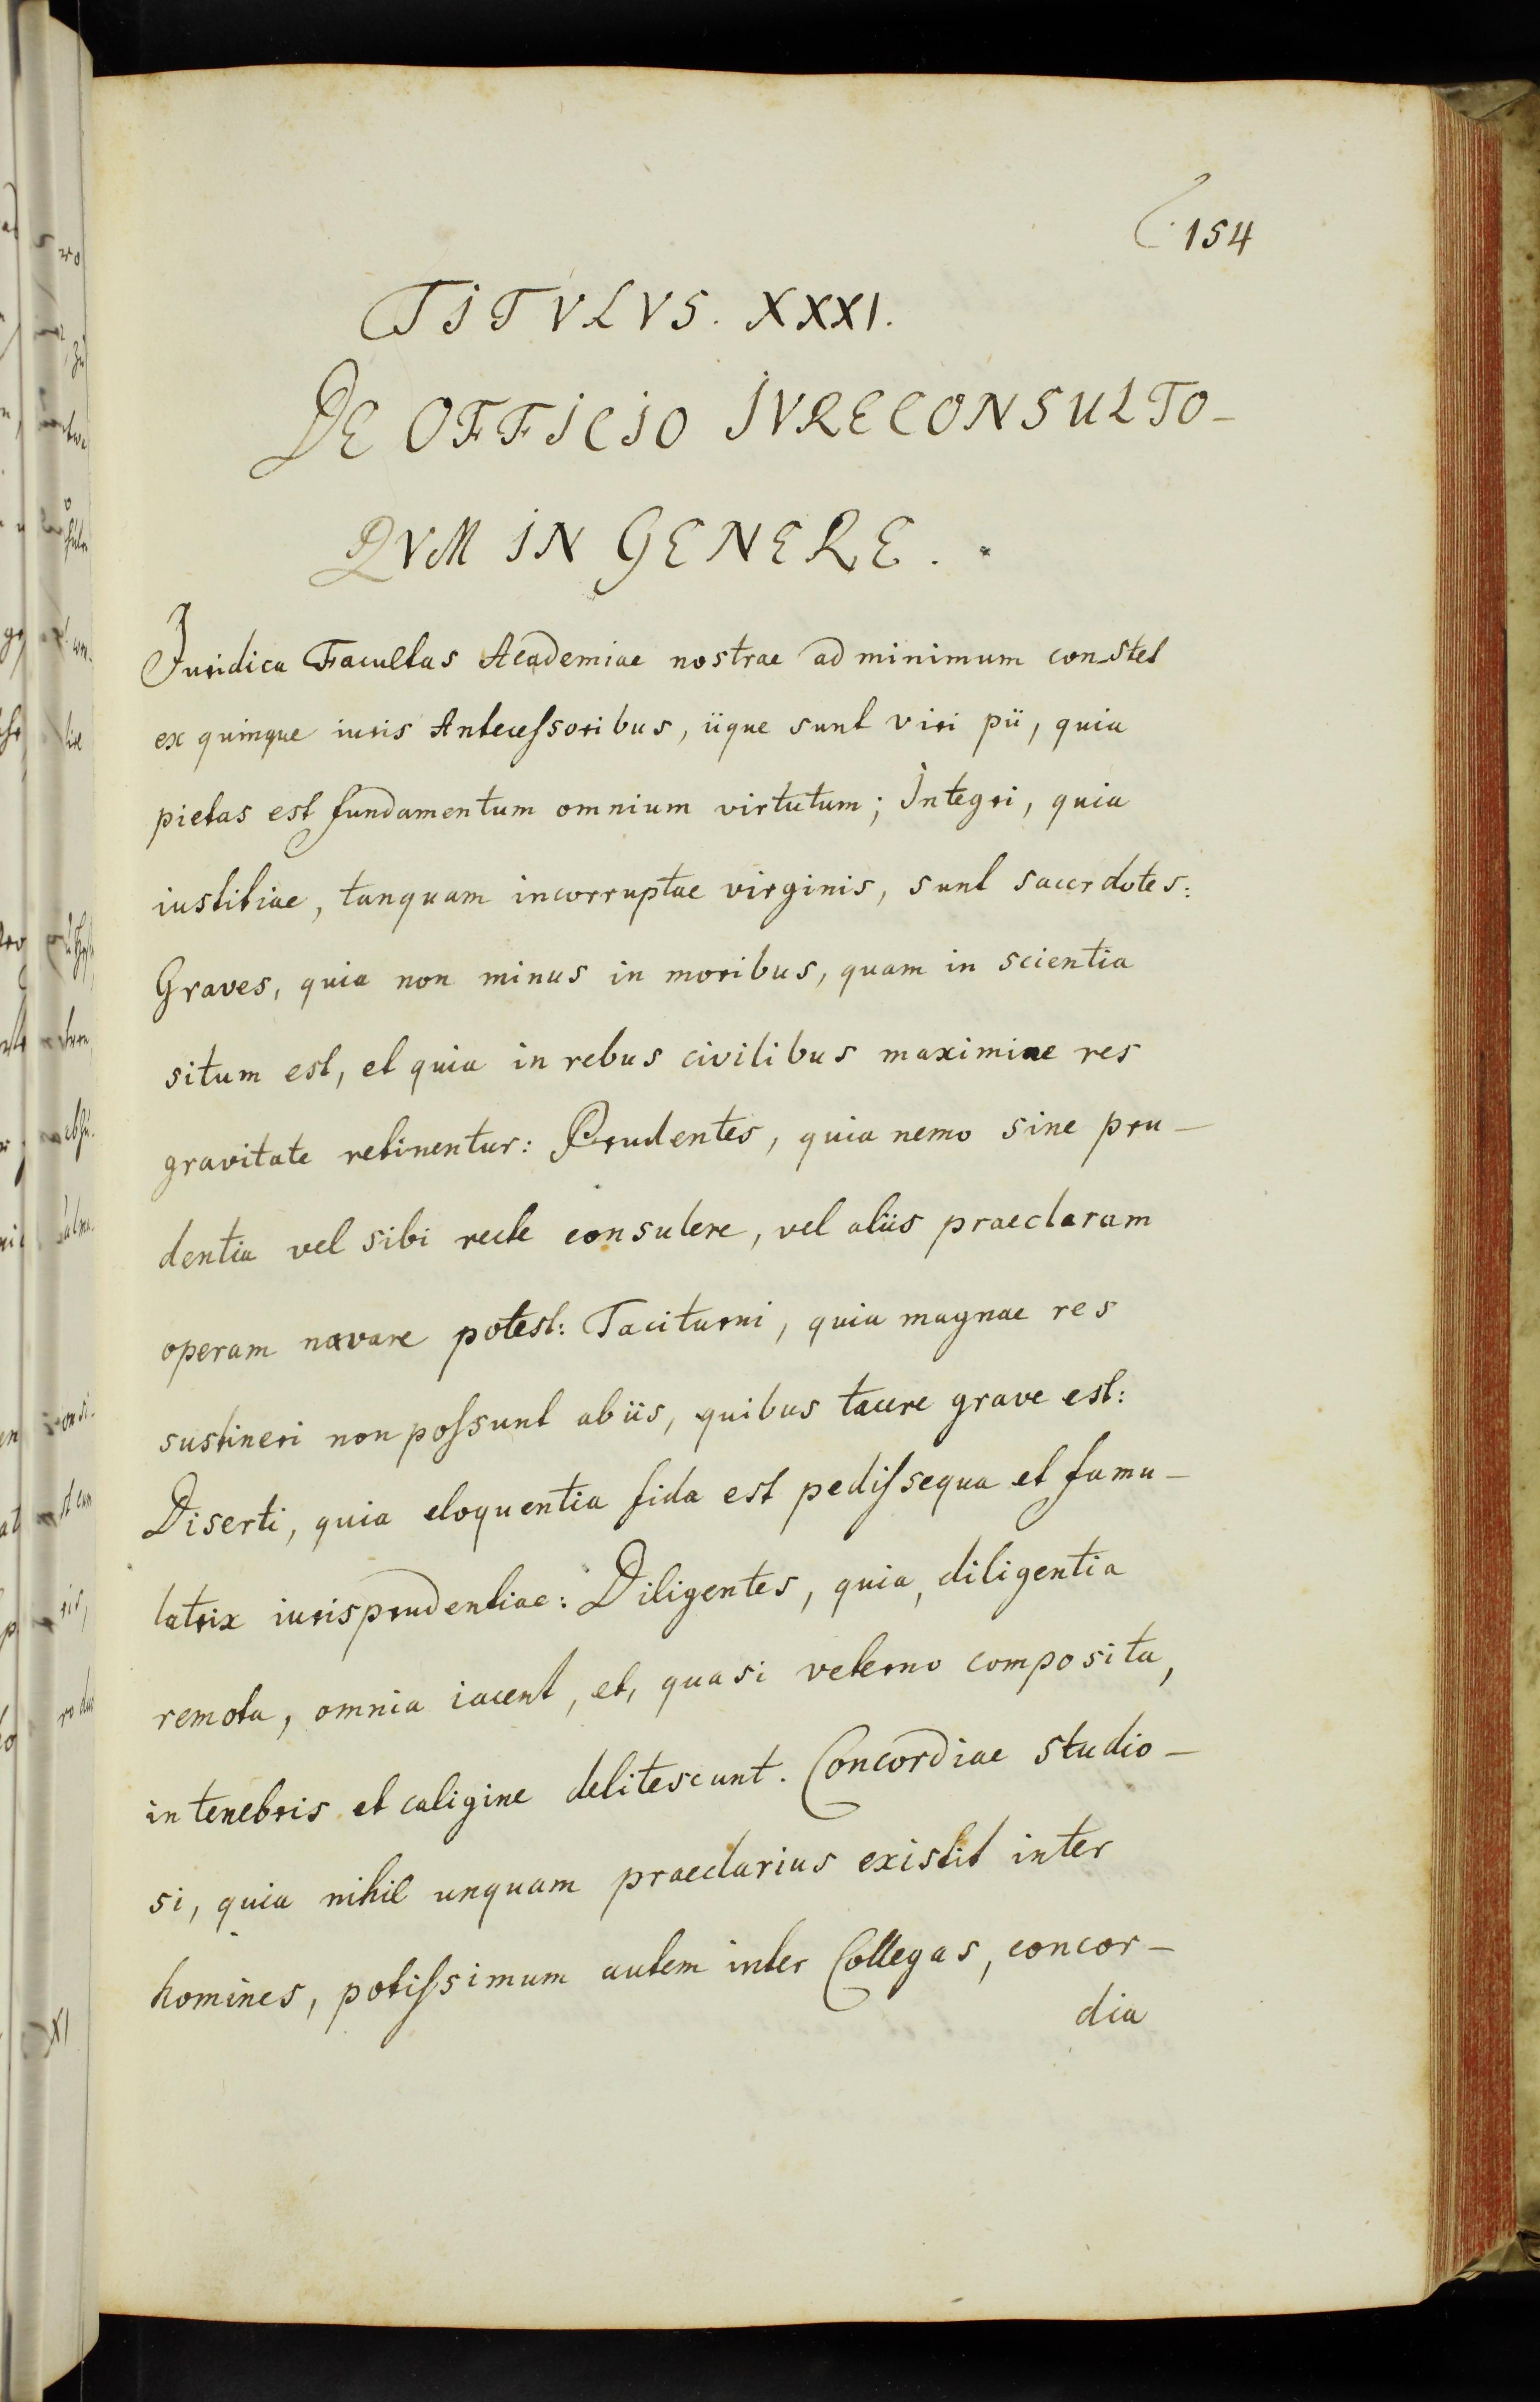 154
TITVLVS. XXXI.
DE OFFICIO IVRECONSULTO-
RVM IN GENERE.
Juridica Facultas Academiae nostrae ad minimum constet
ex quinque iuris Antecessoribus, iique sunt viri pii, quia
pietas est fundamentum omnium virtutum; Integri, quia
iustitiae, tanquam incorruptae virginis, sunt sacerdotes:
Graves, quia non minus in moribus, quam in scientia
situm est, et quia in rebus civilibus maximae res
gravitate retinentur: Prudentes, quia nemo sine pru-
dentia vel sibi recte consulere, vel aliis praeclaram
operam navare potest: Taciturni, quia magnae res
sustineri non possunt ab iis, quibus tacere grave est:
Diserti, quia eloquentia fida est pedissequa et famu-
latrix iurisprudentiae: Diligentes, quia, diligentia
remota, omnia iacent, et, quasi veterno composita,
in tenebris et caligine delitescunt. Concordiae studio-
si, quia nihil unquam praeclarius existit inter
homines, potissimum autem inter Collegas, concor-
dia